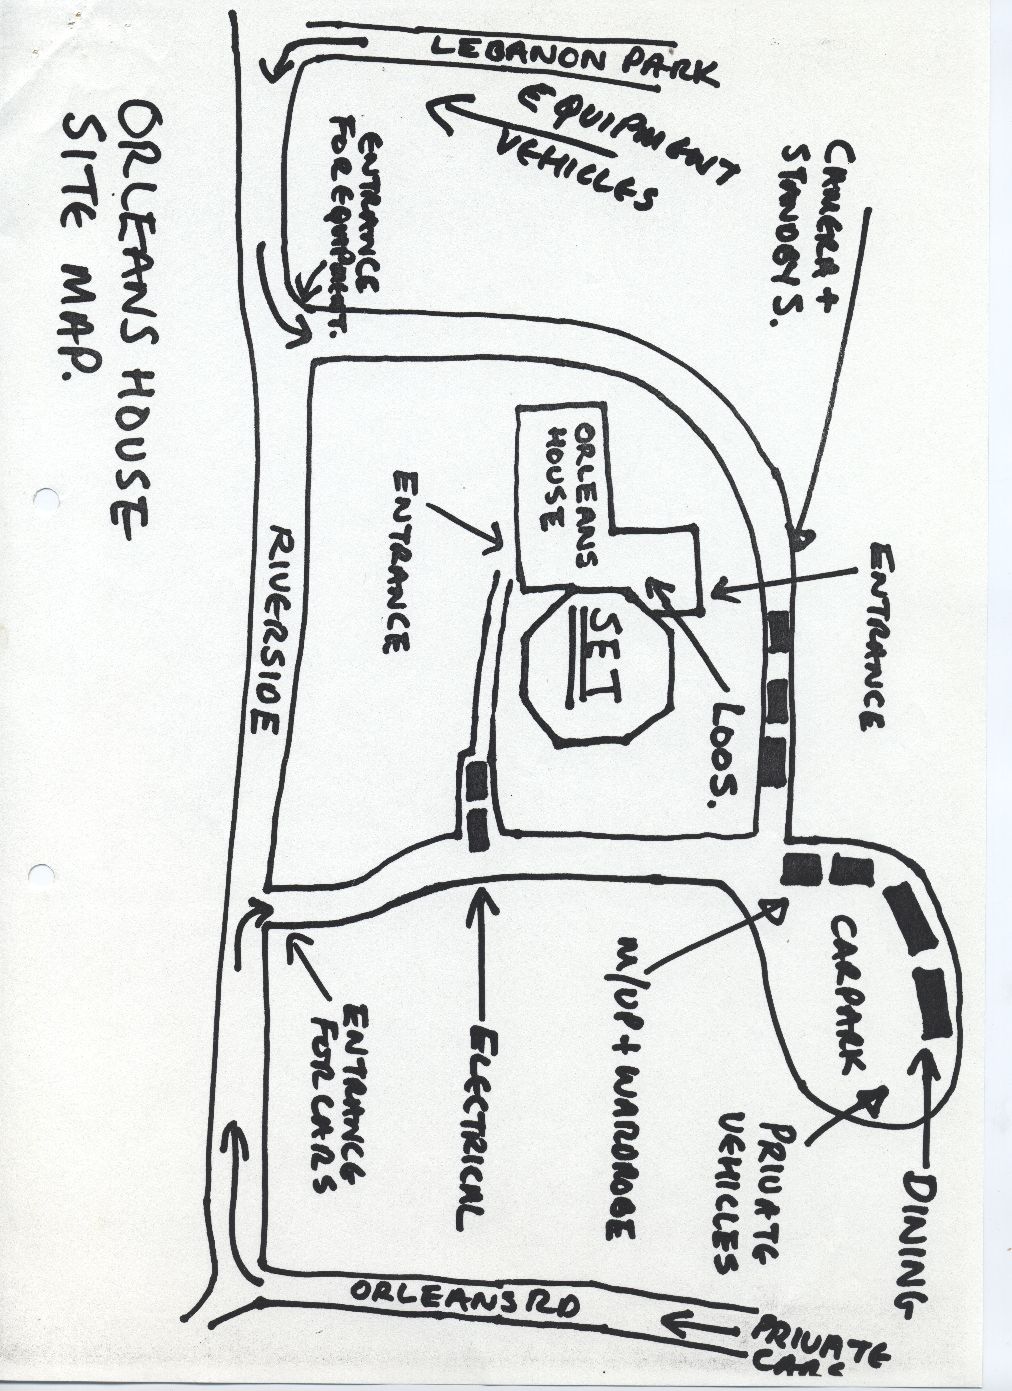 ORLEANS HOUSE
SITE MAP.
LEBANON PARK
EQUIPMENT
VEHICLES
ENTRANCE
FOR EQUIPMENT.
CAMERA +
STANDBYS.
ORLEANS
HOUSE
ENTRANCE
ENTRANCE
SET
LOOS.
RIVERSIDE
CARPARK
M/UP + WARDROBE
ELECTRICAL
ENTRANCE
FOR CARS
PRIVATE
VEHICLES
DINING
ORLEANS RD
PRIVATE
CARS